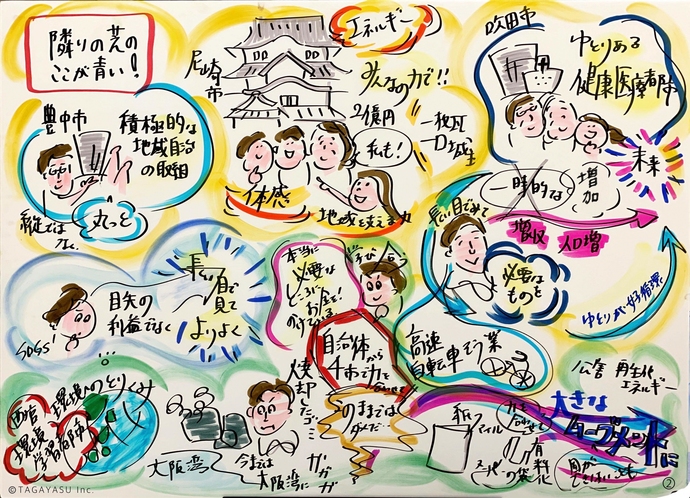 隣りの芝の
ここが青い!
尼崎市
エネルギー
みんなの力で!!
2億円
私も!
一枚瓦
口城主
一体感
地域を支える力
吹田市
ゆとりある
健康医療都市
未来
一時的な
増加
増収
人口増
長い目でみて
必要な
ものを
ゆとりが好循環
豊中市
積極的な
地域自治
の取組
縦では
なく、
丸っと
SDGs!
目先の
利益でなく
長い目で
見て
よりよく
本当に
必要な
ところに
お金を!
学び
自治体から
高速
自転車そう業
公害
再生化
エネルギー
西宮
環境
学習都市
環境へのとりくみ
大阪湾
焼却したゴミ…
今までは
大阪湾に
このままでは
ダメだ…
紙ファイル
力を
合わせて
スーパー
の袋
有料化
大きな
ムーブメントに
②
©TAGAYASU Inc.